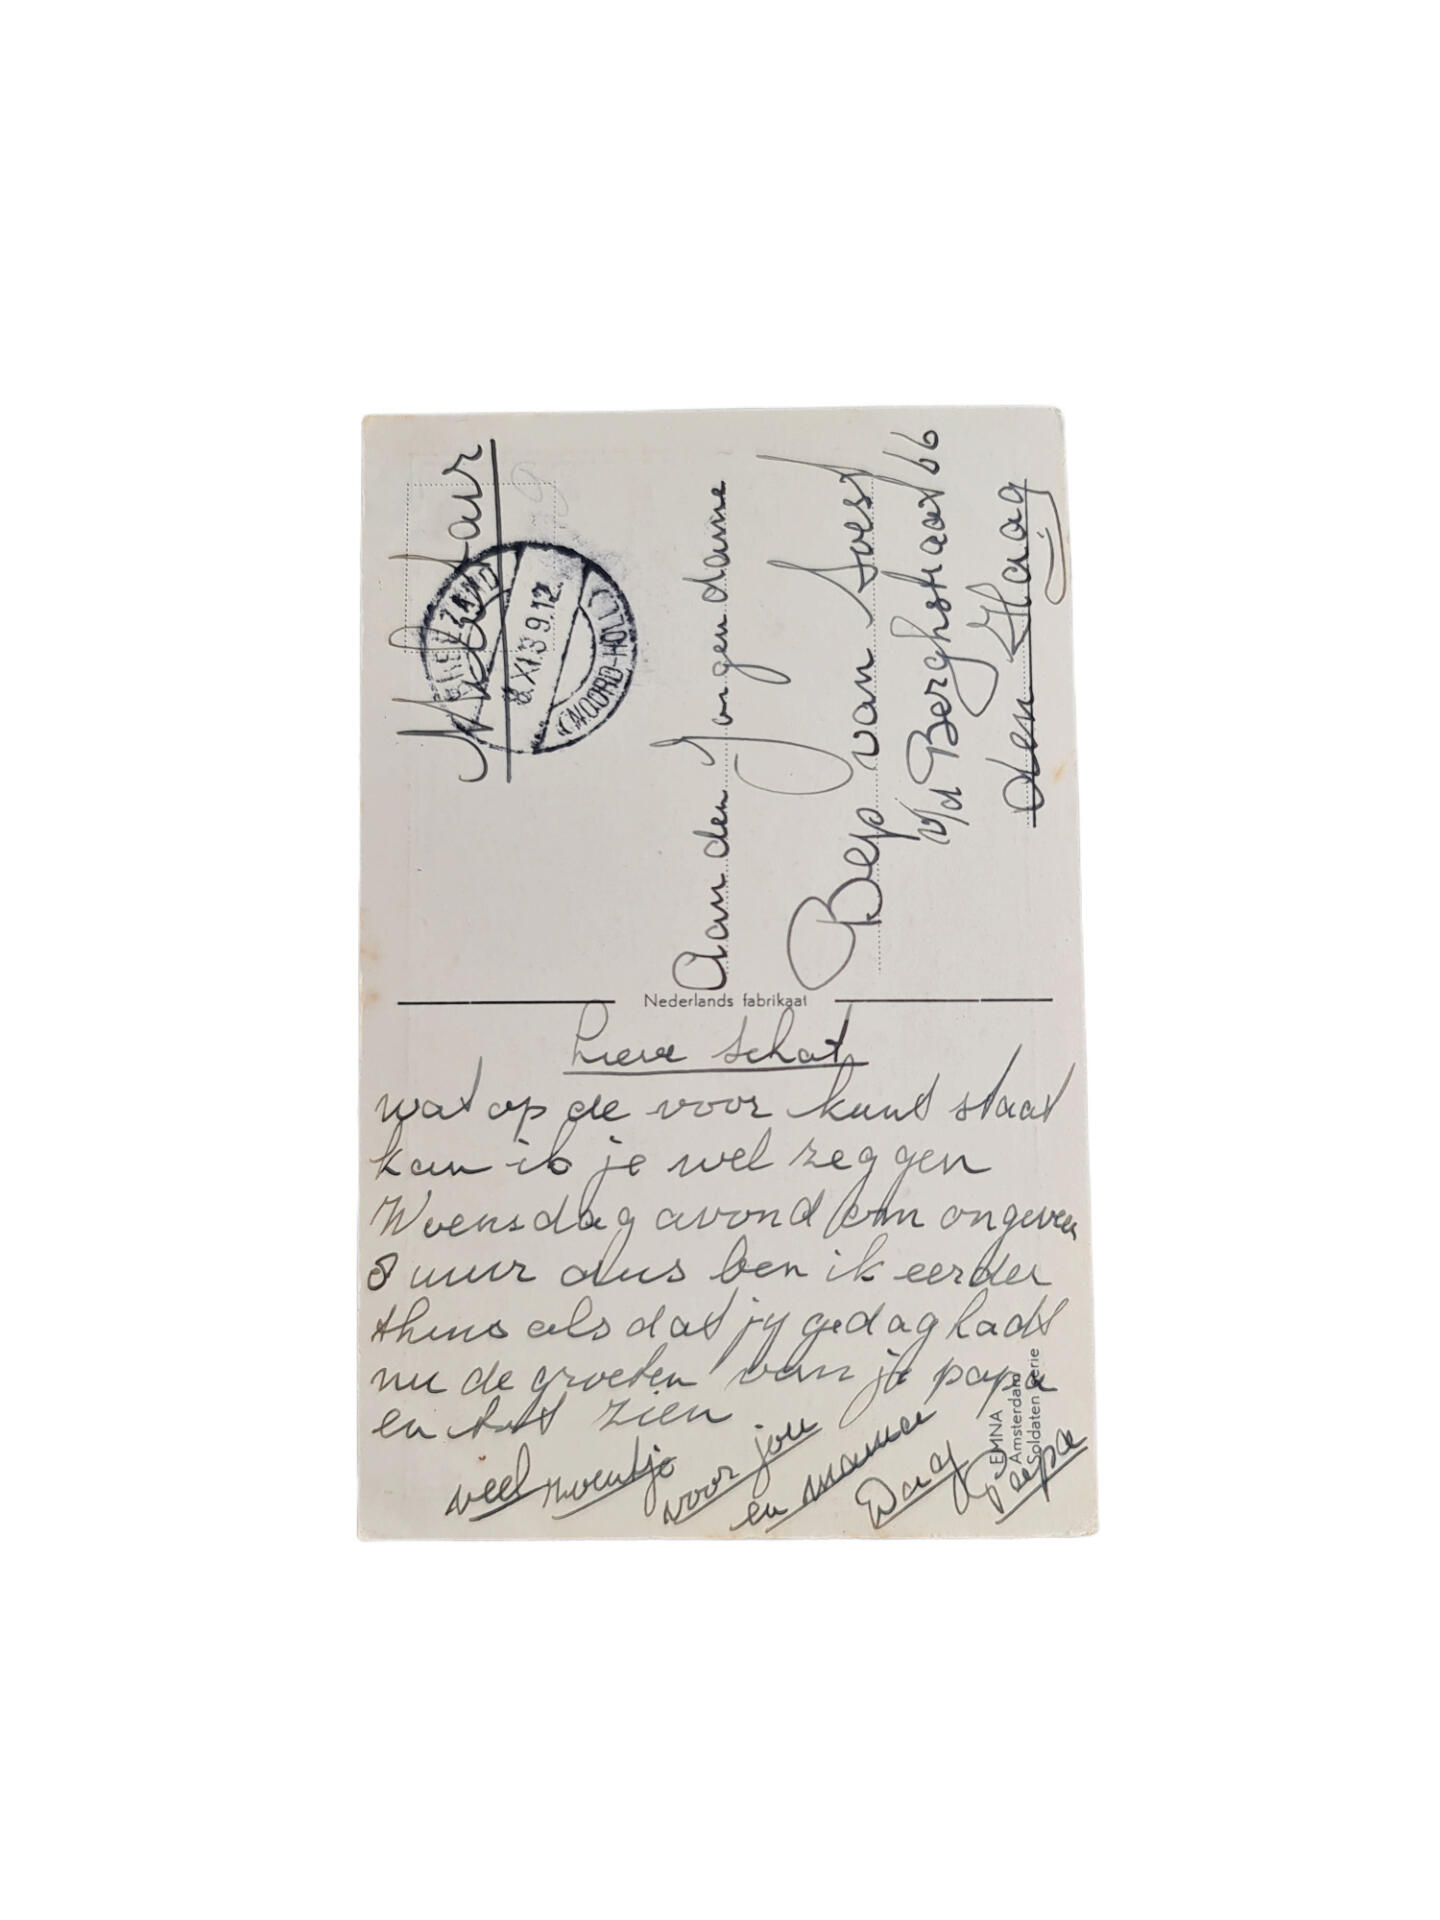 Militair
BREEZAND
8.XI.39.12.
(NOORD-HOLL.)
Aan den Jongen dame
Bep van Soest
v/d Berghstraat 66
den Haag
Nederlands fabrikaat
Lieve schat
wat op de voor kunt staat
kan ik je wel zeggen
Woensdag avond om ongeveer
8 uur dus ben ik eerder
thuis als dat jy gedag hadt
nu de groeten van je papa
en tot zien
veel zoentje
voor jou
en mama
Dag
Papa
EMNA
Amsterdam
Soldaten Serie